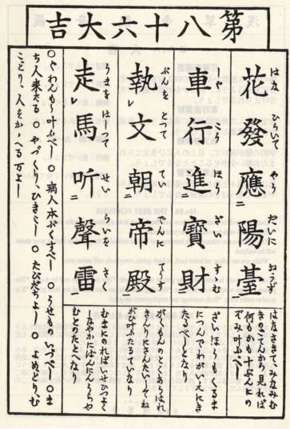 第八十六大吉
花發應陽臺
はな ひらいて やう だいに おうず
車行進寶財
しや こう ほう ざい すゝむ
執文朝帝殿
ぶんを とつて てい でんに てうす
走馬听聲雷
うまを はしつて せい らいを きく
はなさきてみなみむ
きのごてんから見れば
何もかも十ぶんにの
ぞみ叶ふべし
ざいほうもくるま
につんでわがいえにき
たるべしとなり
がくもんのとくあらはれ
きんりにさんだいしてね
がひ叶ふたるていなり
むまにのればいせひつよく
しなやかにばんにんうらや
むとたとへなり
○ぐわんもう叶ふべし ○病人本ぷくすべし ○うせものいづべし ○ま
ち人来たる ○やづくり、ひきこし ○たびだちよし ○よめどりむ
ことり、人をかゝへる万よし